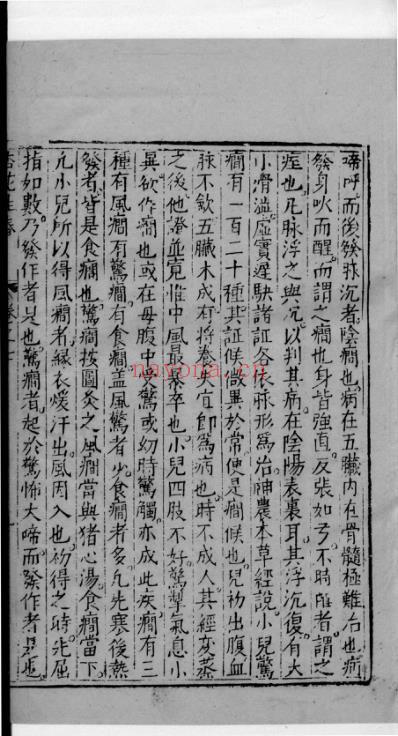 啼呼而後發脉沉者陰癎也病在五臟内在骨髓極難治也病
發身吹而醒而謂之癎也身皆強直反張如弓不時醒者謂之
痓也凡脉浮之與沉以判其病在陰陽表裏耳其浮沉復有大
小滑澁虛實遲駃諸証各依脉形爲治神農本草經説小兒驚
癎有一百二十種其証候微異於常便是癎候也兒初出腹血
脉不歛五臟未成稍將養失宜即爲病也時不成人其經変蒸
之後他疹並寛惟中風最暴卒也小兒四肢不好驚掣氣息小
異欲作癎也或在母腹中受驚或幼時驚觸亦成此疾癎有三
種有風癎有驚癎有食癎盖風驚者少食癎者多凡先寒後熱
發者皆是食癎也驚癎按圖灸之風癎當與猪心湯食癎當下
凡小兒所以得風癎者縁衣煖汗出風因入也初得之時先屈
指如數乃發作者是也驚癎者起於驚怖大啼而發作者是也
nayona.cn